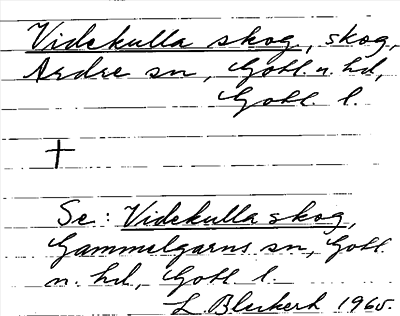 Videkulla skog, skog,
Ardre sn, Gotl. n. hd,
Gotl. l.
†
Se: Videkulla skog,
Gammelgarns sn, Gotl.
n. hd, Gotl l.
L 1960.